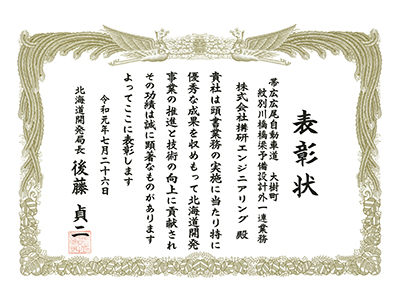 表彰状
帯広広尾自動車道 大樹町
紋別川橋橋梁予備設計外一連業務
株式会社構研エンジニアリング 殿
貴社は頭書業務の実施に当たり特に
優秀な成果を収めもって北海道開発
事業の推進と技術の向上に貢献され
その功績は誠に顕著なものがあります
よってここに表彰します
令和元年七月二十六日
北海道開発局長 後藤 貞二